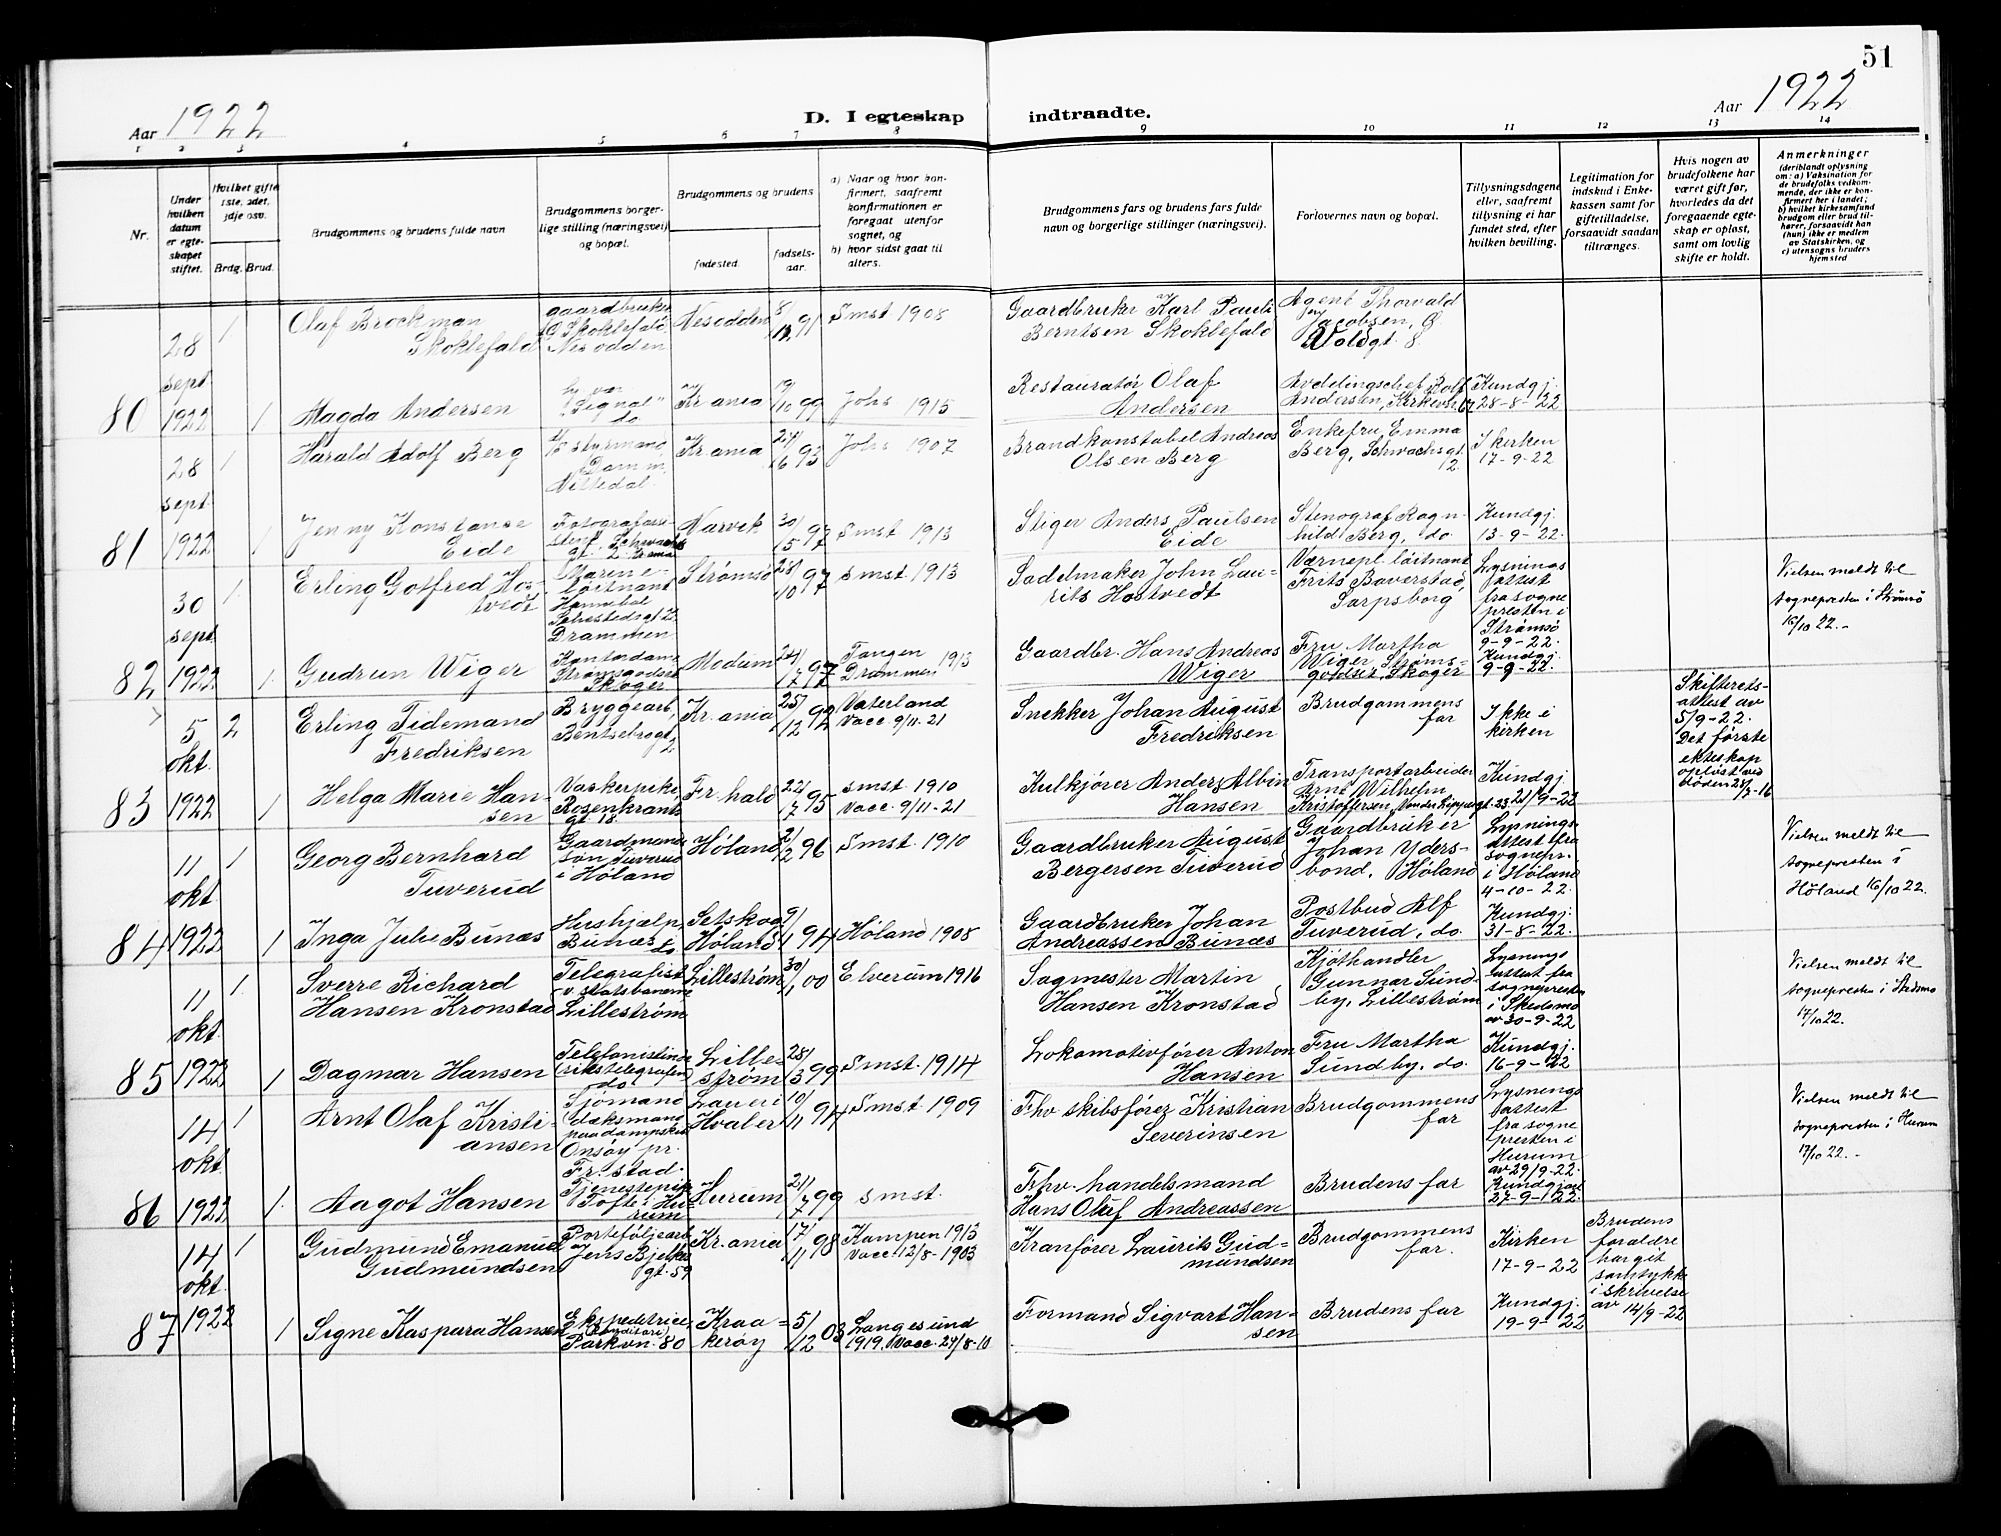 51
Aar 1922
D. I egteskap indtraadte.
Aar 1922
1 2 3 4 5 6 7 8 9 10 11 12 13 14
Nr.
Under hvilken datum er egteskapet stiftet.
Hvilket gifte 1ste, 2det, 3dje osv.
Brdg. Brud.
Brudgommens og brudens fulde navn
Brudgommens borgerlige stilling (næringsvei) og bopæl.
Brudgommens og brudens
fødested.
fødselsaar.
a) Naar og hvor konfirmert, saafremt konfirmationen er foregaat utenfor sognet, og
b) hvor sidst gaat til alters.
Brudgommens fars og brudens fars fulde navn og borgerlige stillinger (næringsvei).
Forlovernes navn og bopæl.
Tillysningsdagene eller, saafremt tillysning ei har fundet sted, efter hvilken bevilling.
Legitimation for indskud i Enkekassen samt for giftetilladelse, forsaavidt saadan tiltrænges.
Hvis nogen av brudefolkene har været gift før, hvorledes da det foregaaende egteskap er opløst, samt om lovlig skifte er holdt.
Anmerkninger
(deriblandt oplysning om: a) Vaksination for de brudefolks vedkommende, der ikke er konfirmert her i landet; b) hvilket kirkesamfund brudgom eller brud tilhører, forsaavidt han (hun) ikke er medlem av Statskirken, og c) utensogns bruders hjemsted
80
28 sept 1922
1
Olaf Brockman Skoklefald
gaardbruker Skoklefald Nesodden
Nesodden
8/12 91
Smst 1908
Gaardbruker Karl Pauli Berntsen Skoklefald
Agent Thorvald Jacobsen, Ø Voldgt. 8.
1
Magda Andersen
"Signal" do
Kr.ania
19/10 99
Johs 1915
Restauratør Olaf Andersen
Avdelingschef Rolf Andersen, Kirkevn. 67
Kundgj. 28-8-22
81
28 sept. 1922
1
Harald Adolf Berg
Nittedal
Kr.ania
24/6 93
Johs 1907
Brandkonstabel Andreas Olsen Berg
Enkefru Emma Berg, Schwachsgt. 2.
I kirken 17-9-22
1
Jenny Konstanse Eide
Narvik
30/5 97
Smst 1913
Stiger Anders Paulsen Eide
Stenograf Ragnhild Berg, do.
Kundgj. 13-9-22.
82
30 sept. 1922
1.
Erling Gotfred Hostvedt
Marineløitnant Hannibal Sehestedsgt 2. Drammen
Strømsø
28/10 97
Smst 1913
Sadelmaker John Laurits Hostvedt
Værnepl. løitnant Frits Baverstad, Sarpsborg
Lysnings attest fra sogne presten i Strømsø 9-9-22.
Vielsen meldt til sognepresten i Strømsø 16/10 22.-
1.
Gudrun Wiger
Kontordame Strømsgodset Skoger
Modum
24/7 97
Tangen Drammen 1913
Gaardbr. Hans Andreas Wiger
Fru Martha Wiger, Strømsgodset, Skoger
Kundgj. 9-9-22.
83
5 okt. 1922
2
Erling Tidemand Fredriksen
Bryggearb, Bentsebrogt, 2
Kr.ania
25/12 92
Vaterland Vacc. 9/11-21
Snekker Johan August Fredriksen
Brudgommens far
Ikke i kirken
Skifteretsattest av 5/9-22. Det første ekteskap opløst ved døden 21/3-16
1
Helga Marie Hansen
Vaskerpike, Rosenkrantz gt 13
Fr.hald
22/7 95
smst. 1910 Vacc. 9/11-21
Kulkjører Anders Albin Hansen
Transportarbeider Arne Wilhelm Kristoffersen, Vander Lippesgt. 23
Kundgj. 21/9-22
84
11 okt 1922
1
Georg Bernhard Tuverud
Gaardmandssøn Tuverud i Høland
Høland
2/2 96
Smst. 1910
Gaardbruker August Bergersen Tuverud
Gaardbruker Johan Ydersbond, Høland
Lysnings attest fra sognepr. i Høland 4-10-22.
Vielsen meldt til sognepresten i Høland 16/10 22.
1
Inga Julie Bunæs
Hushjælp, Bunæs, do
Setskog Høland
9/1 94
Høland 1908
Gaardbruker Johan Andreassen Bunæs
Postbud Alf Tuverud, do.
Kundgj. 31-8-22.
85
11 okt. 1922
1
Sverre Richard Hansen Kronstad
Telegrafist v. statsbanerne Lillestrøm
Lillestrøm
30/1 00
Elverum 1916
Sagmester Martin Hansen Kronstad
Kjøthandler Gunnar Sundby, Lillestrøm
Lysnings attest fra sognepresten i Skedsmo av 30-9-22
Vielsen meldt til sognepresten i Skedsmo 17/10 22.
1
Dagmar Hansen
Telefonistinde (rikstelegrafen) do
Lillestrøm
28/3 99
Smst. 1914
Lokomotivfører Anton Hansen
Fru Martha Sundby, do.
Kundgj. 16-9-22
86
14 okt. 1922
1
Arnt Olaf Kristiansen
Sjømand dæksmand paa dampskib Onsøy pr. Fr.stad.
Laueri Hvaler
10/11 94
Smst 1909
Fhv skibsfører Kristian Severinsen
Brudgommens far
Lysnings attest fra sogne presten i Hurum av 29/9-22.
Vielsen meldt til sognepresten i Hurum 17/10 22.-
1.
Aagot Hansen
Tjenestepike Tofte i Hurum
Hurum
21/7 99
smst.
Fhv. handelsmand Hans Oluf Andreassen
Brudens far
Kundgjort 27-9-1922.
87
14 okt. 1922
1
Gudmund Emanuel Gudmundsen
Porteføljearb Jens Bjelkes gt. 59
Kr.ania
17/11 98
Kampen 1913 Vacc. 12/8-1903
Kranfører Laurits Gudmundsen
Brudgommens far.
Kirken 17-9-22
Brudens foraldre har git samtykke i skrivelse av 14/9-22
1
Signe Kaspara Hansen
Ekspeditrice, Parkvn. 80
Kraakerøy
5/12 03
Langesund 1919. Vacc. 27/8-10
Formand Sigvart Hansen
Brudens far
Kundgj. 19-9-22